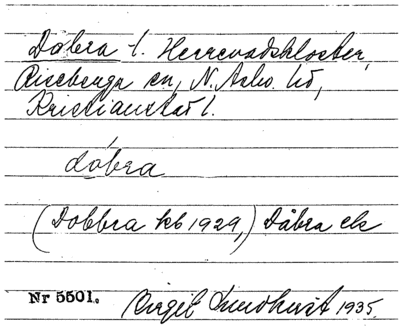 Dobra l. Herrevadskloster,
Riseberga sn, N. Åsbo hd,
Kristianstad l.
dóbra
(Dobbra kb 1929,) Dåbra ek
Nr 5501. Birgit Sundkvist 1935.